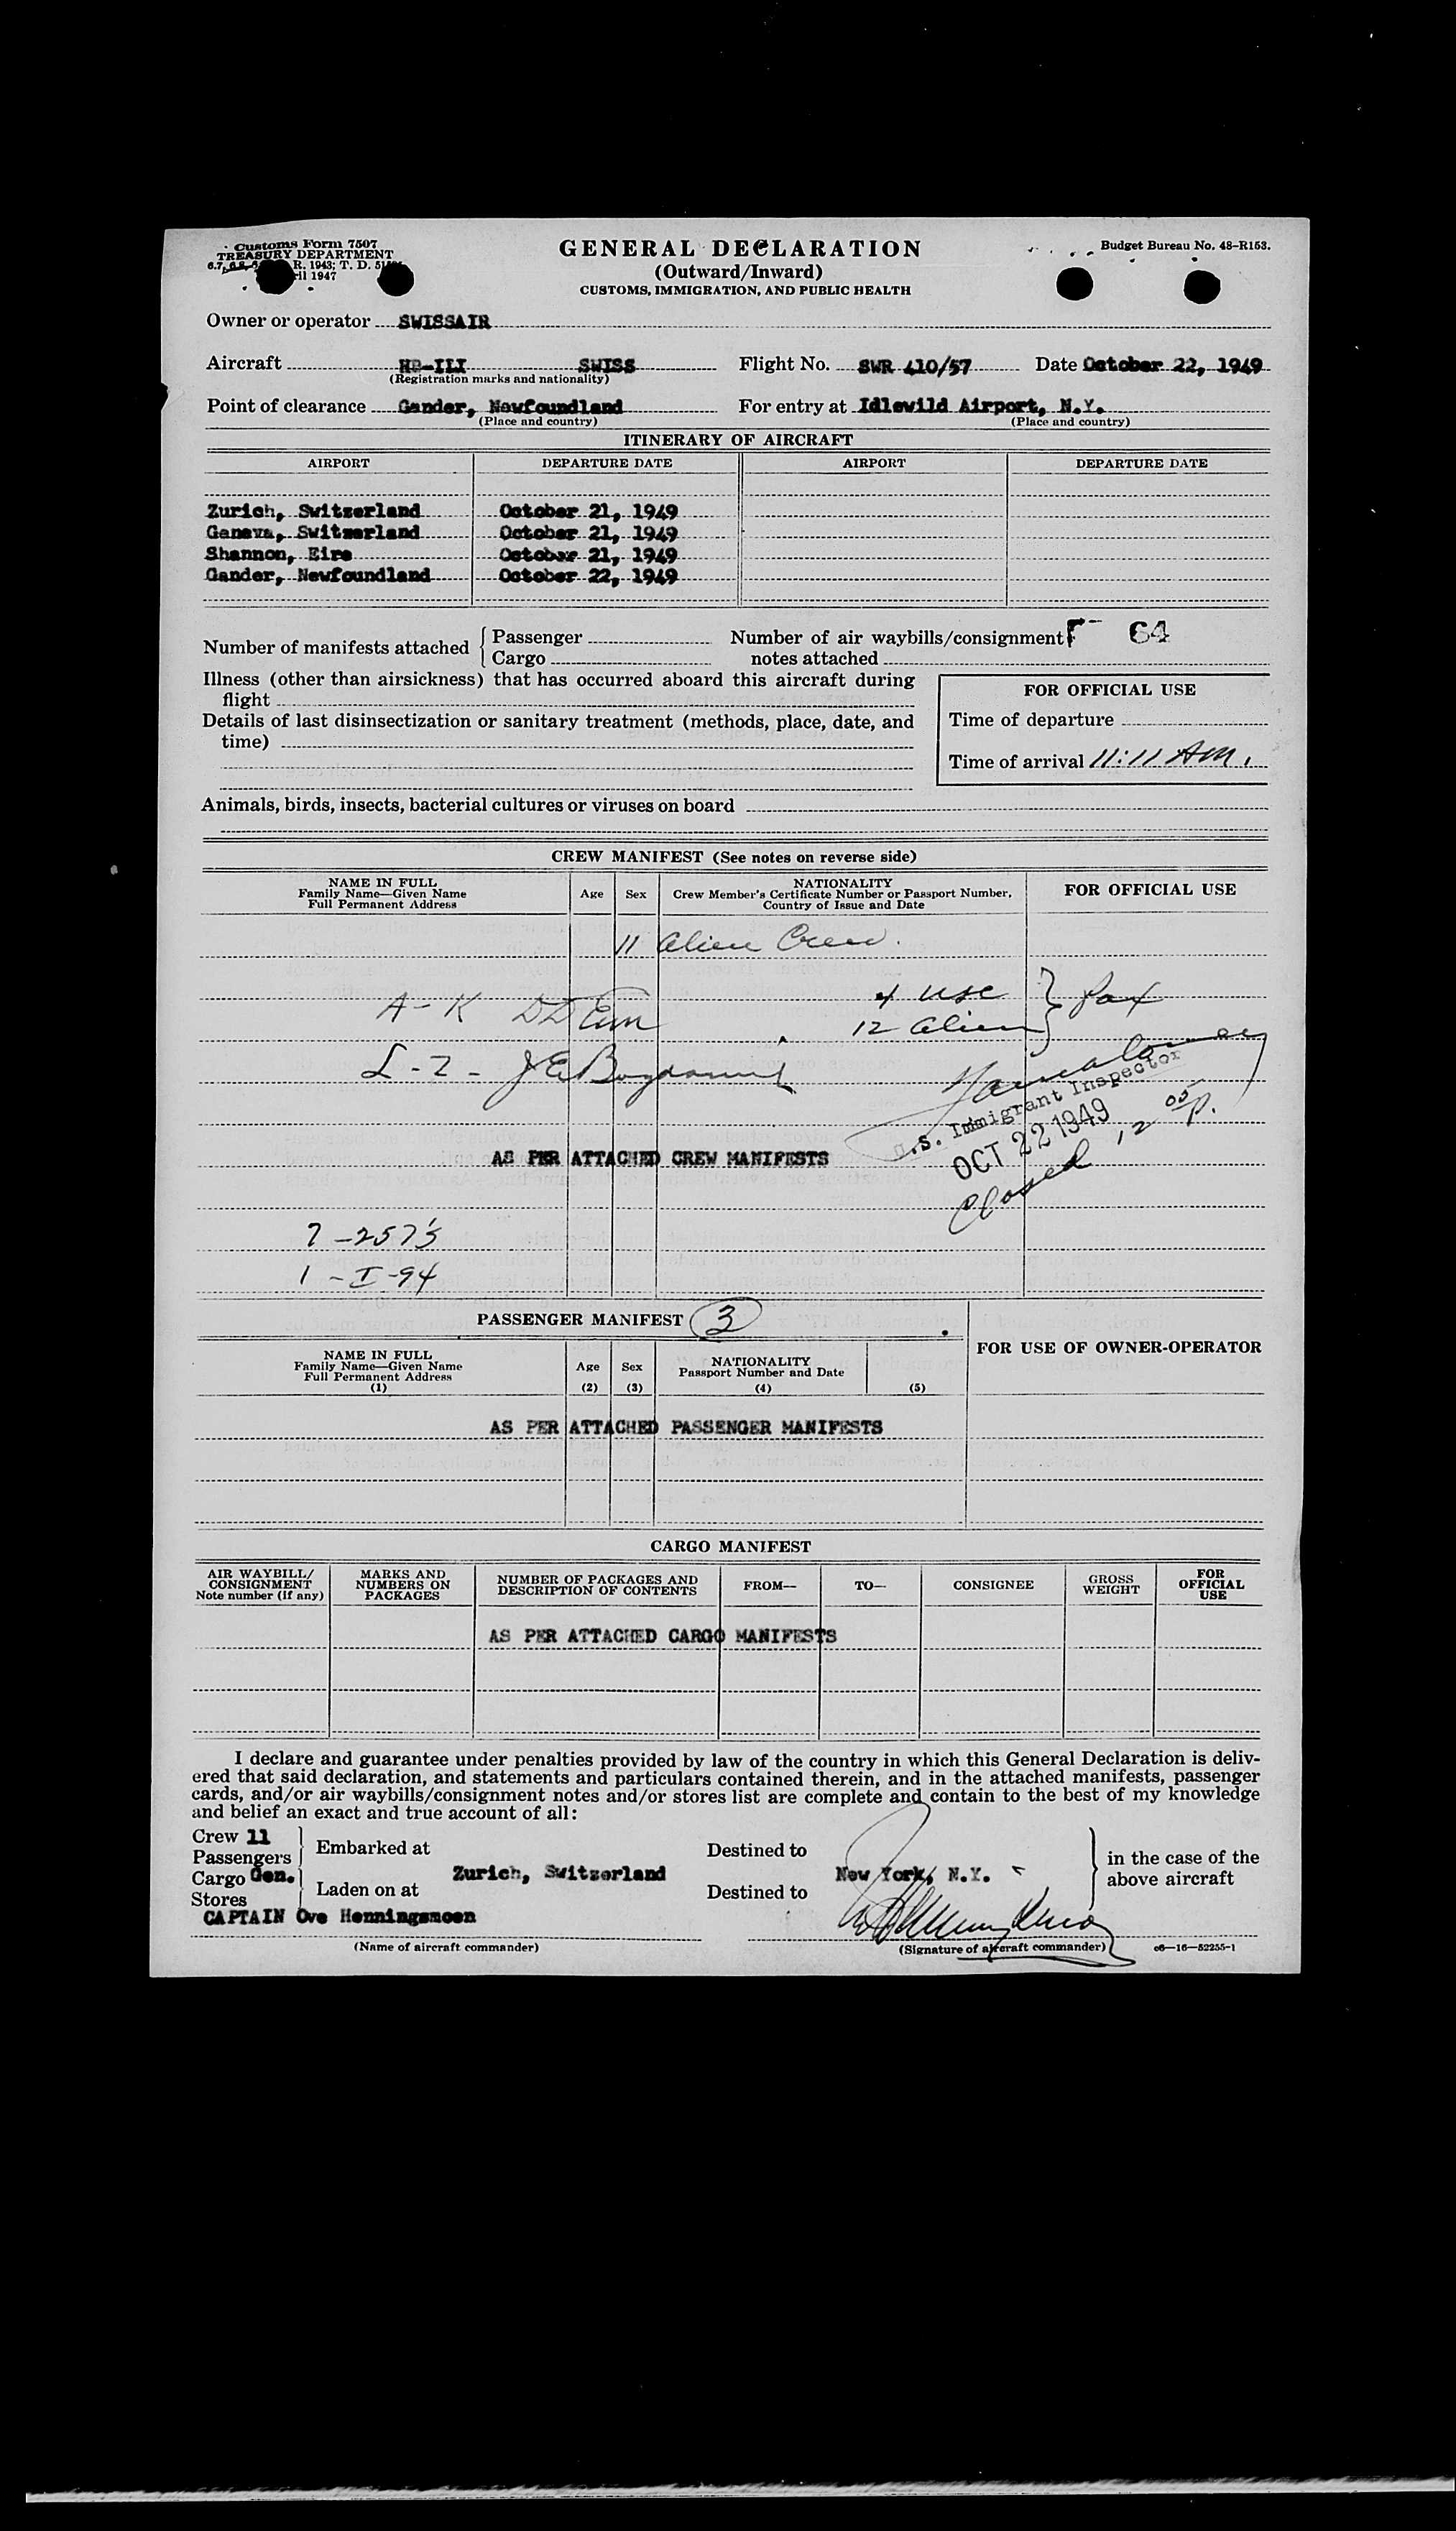 Customs Form 7507
TREASURY DEPARTMENT
R. 1943; T. D.
1947
GENERAL DECLARATION
(Outward/Inward)
CUSTOMS, IMMIGRATION, AND PUBLIC HEALTH
Budget Bureau No. 48-R153.
Owner or operator SWISSAIR
Aircraft HB-ILI SWISS Flight No. SWR 410/57 Date October 22, 1949
(Registration marks and nationality)
Point of clearance Gander, Newfoundland For entry at Idlewild Airport, N.Y.
(Place and country) (Place and country)
ITINERARY OF AIRCRAFT
AIRPORT DEPARTURE DATE AIRPORT DEPARTURE DATE
Zurich, Switzerland October 21, 1949
Geneva, Switzerland October 21, 1949
Shannon, Eire October 21, 1949
Gander, Newfoundland October 22, 1949
Number of manifests attached { Passenger
Cargo
Number of air waybills/consignment
notes attached
64
Illness (other than airsickness) that has occurred aboard this aircraft during
flight
Details of last disinsectization or sanitary treatment (methods, place, date, and
time)
FOR OFFICIAL USE
Time of departure
Time of arrival 11:11 AM.
Animals, birds, insects, bacterial cultures or viruses on board
CREW MANIFEST (See notes on reverse side)
NAME IN FULL
Family Name—Given Name
Full Permanent Address
Age
Sex
NATIONALITY
Crew Member's Certificate Number or Passport Number,
Country of Issue and Date
FOR OFFICIAL USE
11 Alien Crew.
4 USC } Pax
12 Alien
A - K
L - Z -
U.S. Immigrant Inspector
OCT 22 1949
Closed 12 05 P.
AS PER ATTACHED CREW MANIFESTS
7 - 257's
1 - I-94
PASSENGER MANIFEST 3
FOR USE OF OWNER-OPERATOR
NAME IN FULL
Family Name—Given Name
Full Permanent Address
(1)
Age
(2)
Sex
(3)
NATIONALITY
Passport Number and Date
(4)
(5)
AS PER ATTACHED PASSENGER MANIFESTS
CARGO MANIFEST
AIR WAYBILL/
CONSIGNMENT
Note number (if any)
MARKS AND
NUMBERS ON
PACKAGES
NUMBER OF PACKAGES AND
DESCRIPTION OF CONTENTS
FROM—
TO—
CONSIGNEE
GROSS
WEIGHT
FOR
OFFICIAL
USE
AS PER ATTACHED CARGO MANIFESTS
I declare and guarantee under penalties provided by law of the country in which this General Declaration is deliv-
ered that said declaration, and statements and particulars contained therein, and in the attached manifests, passenger
cards, and/or air waybills/consignment notes and/or stores list are complete and contain to the best of my knowledge
and belief an exact and true account of all:
Crew 11
Passengers
Cargo Gen.
Stores
Embarked at
Zurich, Switzerland
Laden on at
Destined to
New York, N.Y.
Destined to
in the case of the
above aircraft
CAPTAIN Ove Henningsmoen
(Name of aircraft commander)
(Signature of aircraft commander)
c6—16—52255-1